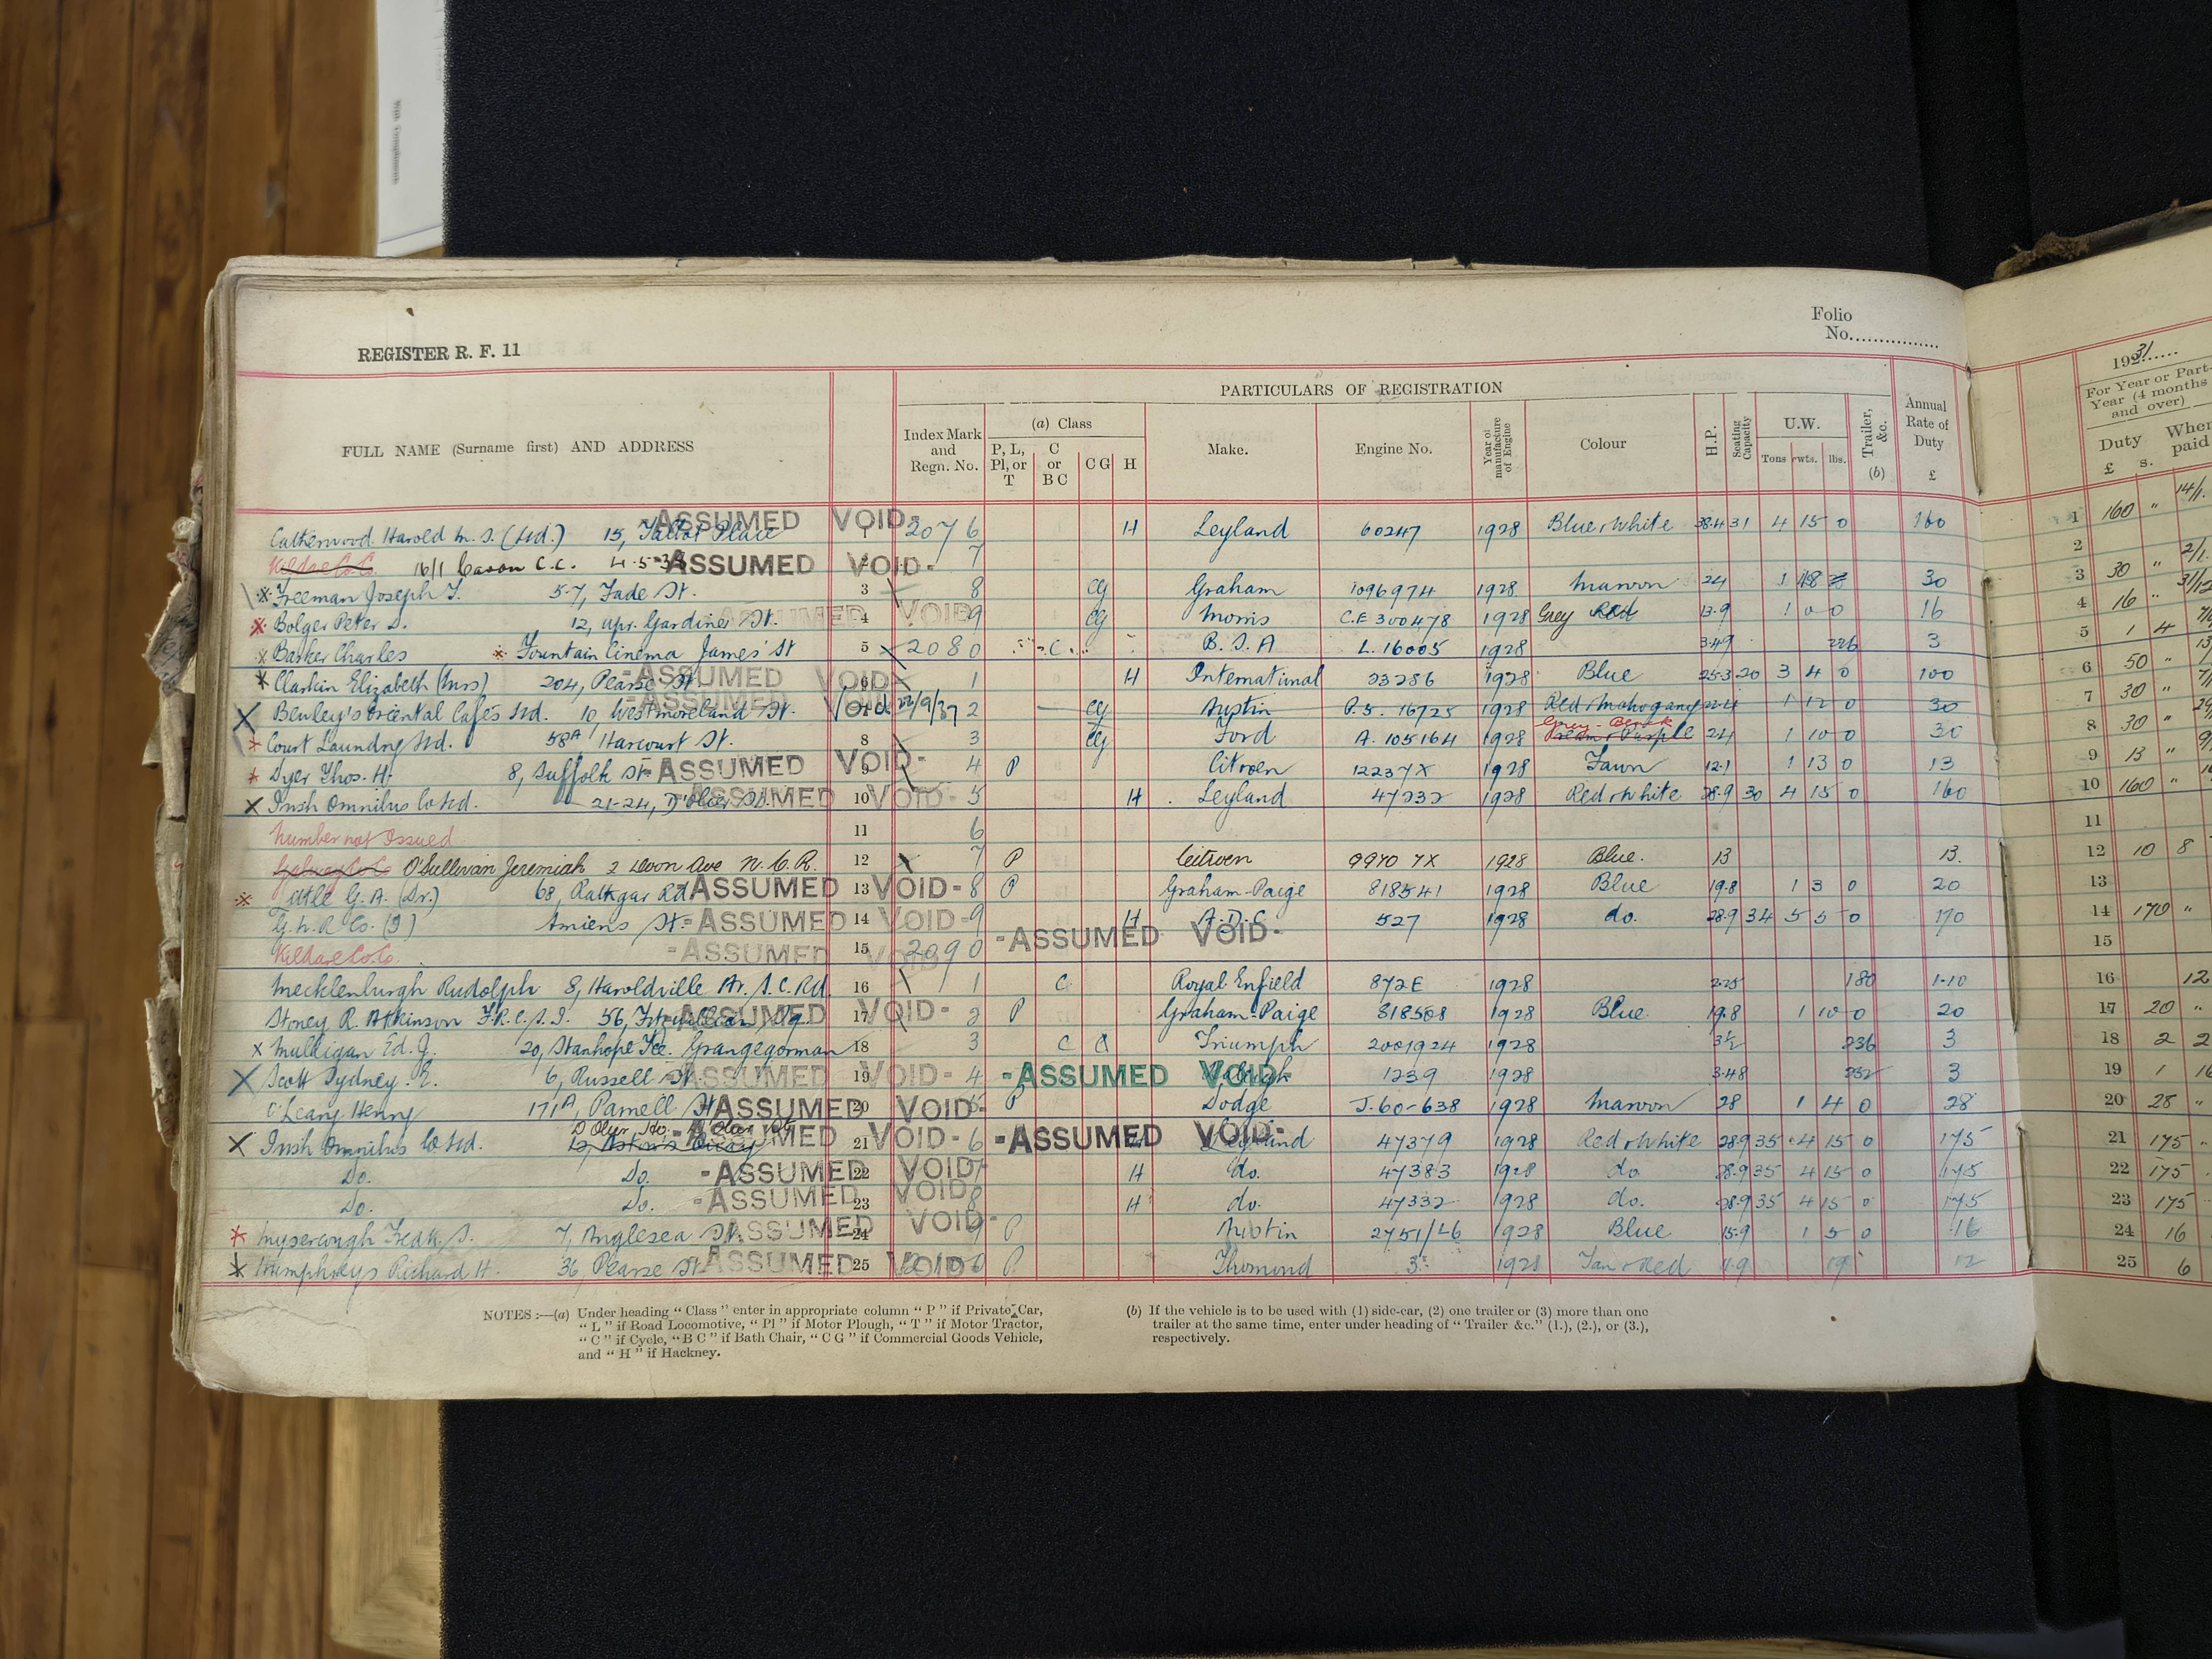 With Compliments
Folio
No.
REGISTER R. F. 11
PARTICULARS OF REGISTRATION
FULL NAME (Surname first) AND ADDRESS
Index Mark and Regn. No.
(a) Class
P, L, Pl, or T
C or B C
C G
H
Make.
Engine No.
Year of manufacture of Engine
Colour
H.P.
Seating Capacity
U.W.
Tons cwts. lbs.
Trailer, &c. (b)
Annual Rate of Duty £
Catherwood Harold M. S. (Ltd.) 15, Talbot Place -ASSUMED VOID- 1 2076 H Leyland 60247 1928 Blue & White 38.4 31 4 15 0 160
Kildare Co. Co. 16/1 C.C. 4-5-38 ASSUMED VOID- 7
Freeman Joseph T. 57, Fade St. 3 8 CG Graham 1096974 1928 Maroon 24 1 18 30
Bolger Peter D. 12, Upr. Gardiner St. ASSUMED VOID 4 9 CG Morris C.E 300478 1928 Grey Red 13.9 1 0 0 16
Barker Charles Fountain Cinema James' St 5 2080 C. B.S.A L. 16005 1928 3.49 226 3
Clarkin Elizabeth (Mrs) 204, Pearse St -ASSUMED VOID- 6 1 H International 23286 1928 Blue 25.3 20 3 4 0 100
Bewley's Oriental Cafés Ltd. 10, Westmoreland St. ASSUMED Void 22/9/37 2 CG Austin 16725 1928 Red & Mahogany 22.4 1 12 0 30
Court Laundry Ltd. 58A Harcourt St. 8 3 CG Ford A. 105164 1928 Grey - Black Cream & Purple 24 1 10 0 30
Dyer Thos. H. 8, Suffolk St -ASSUMED VOID- 9 4 P Citroen 12237X 1928 Fawn 12.1 1 13 0 13
Irish Omnibus Co Ltd. 21-24, D'Olier St. -ASSUMED VOID- 10 5 H Leyland 47232 1928 Red & White 28.9 30 4 15 0 160
Number not Issued 11 6
Galway Co. Co. O'Sullivan Jeremiah 2 Ave N.C.R. 12 7 P Citroen 9970 7X 1928 Blue. 13 13.
Little G. A. (Dr.) 68, Rathgar Rd ASSUMED VOID- 13 8 P Graham-Paige 818541 1928 Blue 19.8 1 3 0 20
G. N. R Co. (I) Amiens St. -ASSUMED VOID- 14 9 H A.D.C. 527 1928 do. 28.9 34 5 5 0 170
Kildare Co. Co. -ASSUMED VOID 15 2090 -ASSUMED VOID-
Mecklenburgh Rudolph 8, Haroldville Av. S.C. Rd. 16 1 C Royal Enfield 872E 1928 2.25 180 1-10
Stoney R. Atkinson F.R.C.S.I. 56, Fitzwilliam Sq. -ASSUMED VOID- 17 2 P Graham-Paige 818508 1928 Blue 19.8 1 10 0 20
Mulligan Ed. J. 20, Stanhope Tce. Grangegorman 18 3 C Triumph 2001924 1928 3½ 236 3
Scott Sydney. E. 6, Russell St. -ASSUMED VOID- 19 4 -ASSUMED VOID- 1239 1928 3.48 232 3
O'Leary Henry 171A, Parnell St ASSUMED VOID- 20 5 P Dodge J.60-638 1928 Maroon 28 1 4 0 28
Irish Omnibus Co Ltd. 12, Aston's Quay -ASSUMED VOID- 21 6 -ASSUMED VOID- Leyland 47379 1928 Red & White 28.9 35 4 15 0 175
Do. Do. -ASSUMED VOID 22 7 H do. 47383 1928 do. 28.9 35 4 15 0 175
Do. Do. -ASSUMED VOID 23 8 H do. 47332 1928 do. 28.9 35 4 15 0 175
Myserough Fredk. S. 7, Anglesea St. ASSUMED VOID- 24 9 P Austin 2751/46 1928 Blue 15.9 1 5 0 16
Humphreys Richard H. 36, Pearse St -ASSUMED VOID 25 2100 P Thomond 3 1928 Tan & Red 11.9 19 12
NOTES :—(a) Under heading " Class " enter in appropriate column " P " if Private Car,
" L " if Road Locomotive, " Pl " if Motor Plough, " T " if Motor Tractor,
" C " if Cycle, " B C " if Bath Chair, " C G " if Commercial Goods Vehicle,
and " H " if Hackney.
(b) If the vehicle is to be used with (1) side-car, (2) one trailer or (3) more than one
trailer at the same time, enter under heading of " Trailer &c." (1.), (2.), or (3.),
respectively.
1931
For Year or Part-
Year (4 months
and over)
Duty
£ s.
When paid
1 160 " 14/1.
2
3 30 " 2/1
4 16 " 31/12
5 1 4
6 50 "
7 30 "
8 30 "
9 13 "
10 160 "
11
12 10 8
13
14 170 "
15
16 12
17 20 "
18 2 2
19 1 16
20 28 "
21 175
22 175
23 175
24 16
25 6